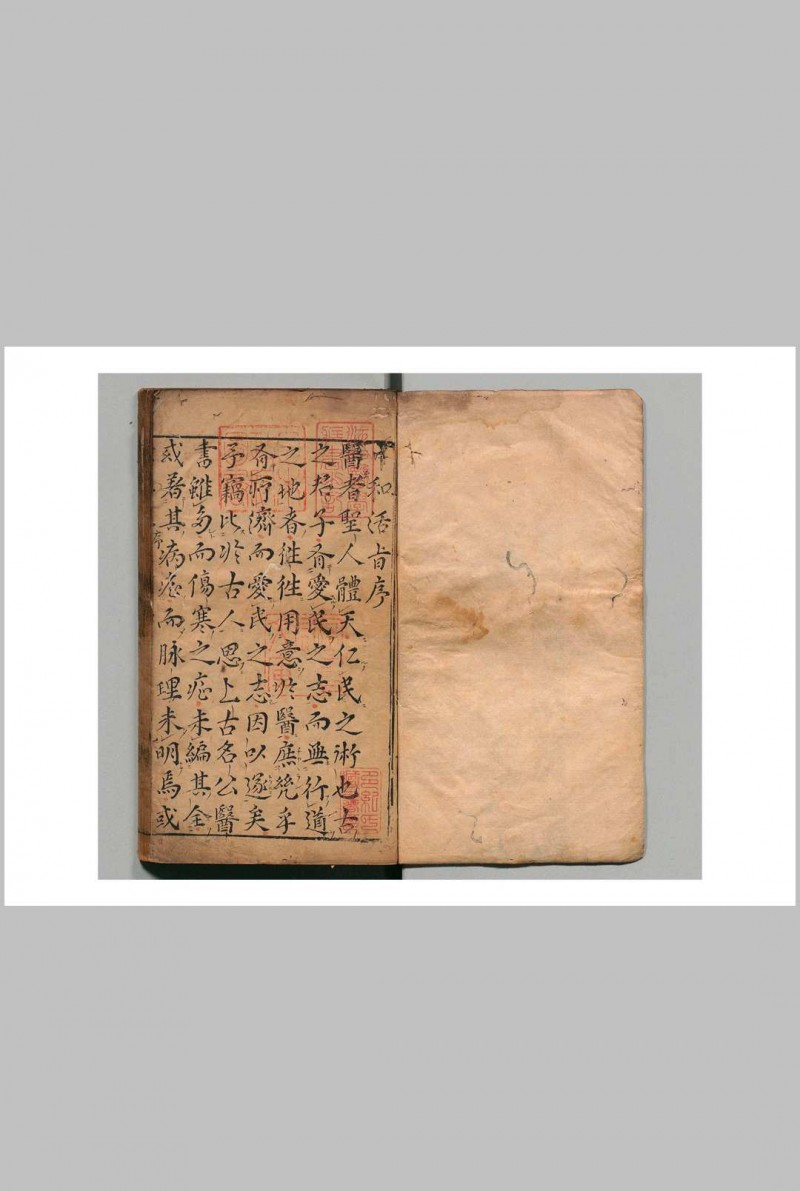 和活旨序
醫者聖人體天仁民之術也古
之君子有愛民之志而無行道
之地者徃徃用意於醫庶幾乎
有所濟而愛民之志因以遂矣
予竊比於古人思上古名公醫
書雖多而傷寒之症未編其全
或著其病症而脉理未明焉或
序